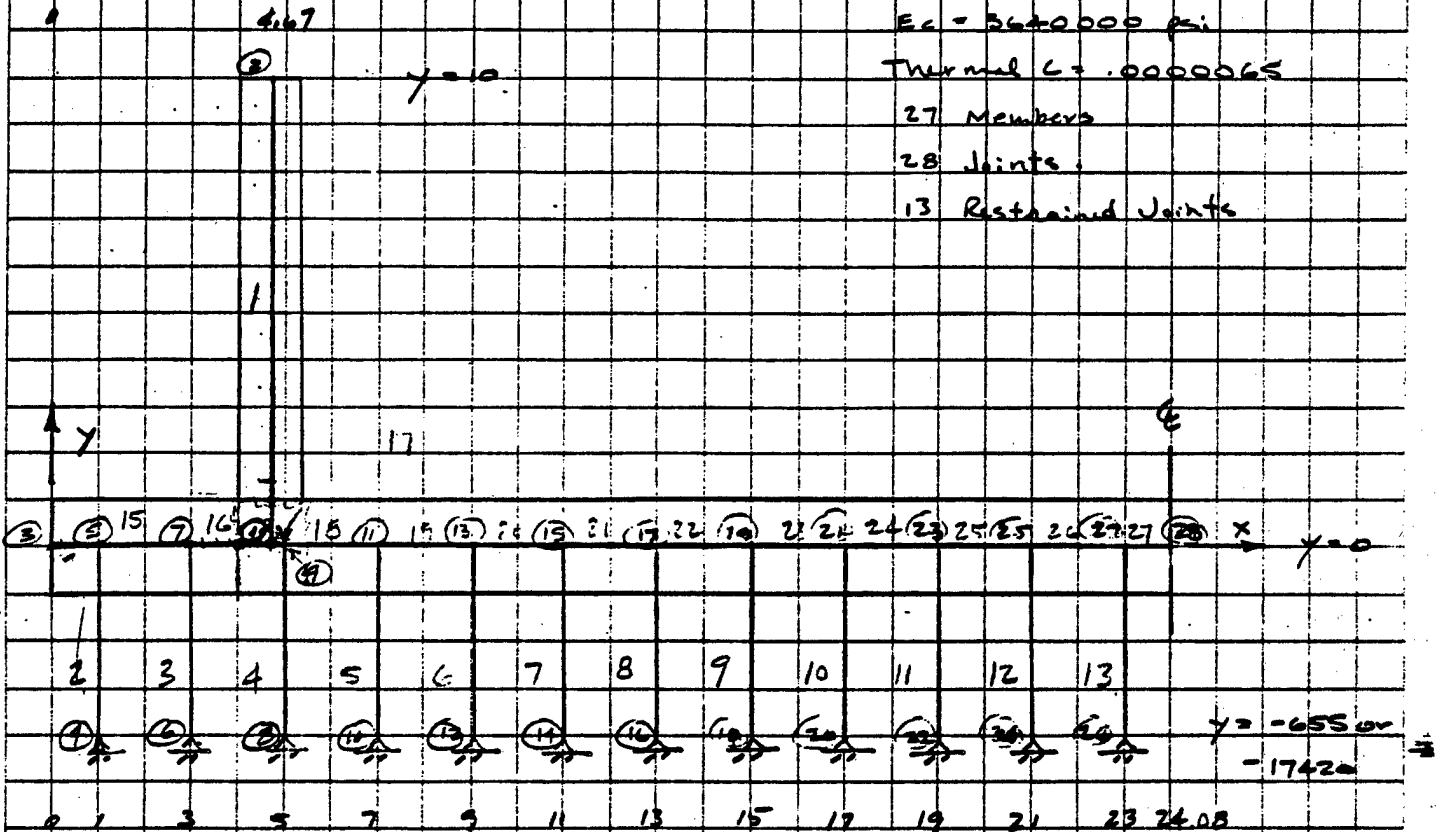 4.67
Ec = 3640000 psi
② y = 10
Thermal C = .0000065
27 Members
28 Joints.
13 Restrained Joints
1
℄
y
17
③ ⑤ 15 ⑦ 16 18 ⑪ 19 ⑬ ⑮ 21 ⑰ 22 ⑲ 24 ㉓ 25 ㉕ 26 ㉗ 27 ㉘ x y = 0
2 3 4 5 6 7 8 9 10 11 12 13
④ ⑥ ⑧ ⑭ ⑯ y = -655 or
-17420
0 1 3 5 7 9 11 13 15 17 19 21 23 24.08